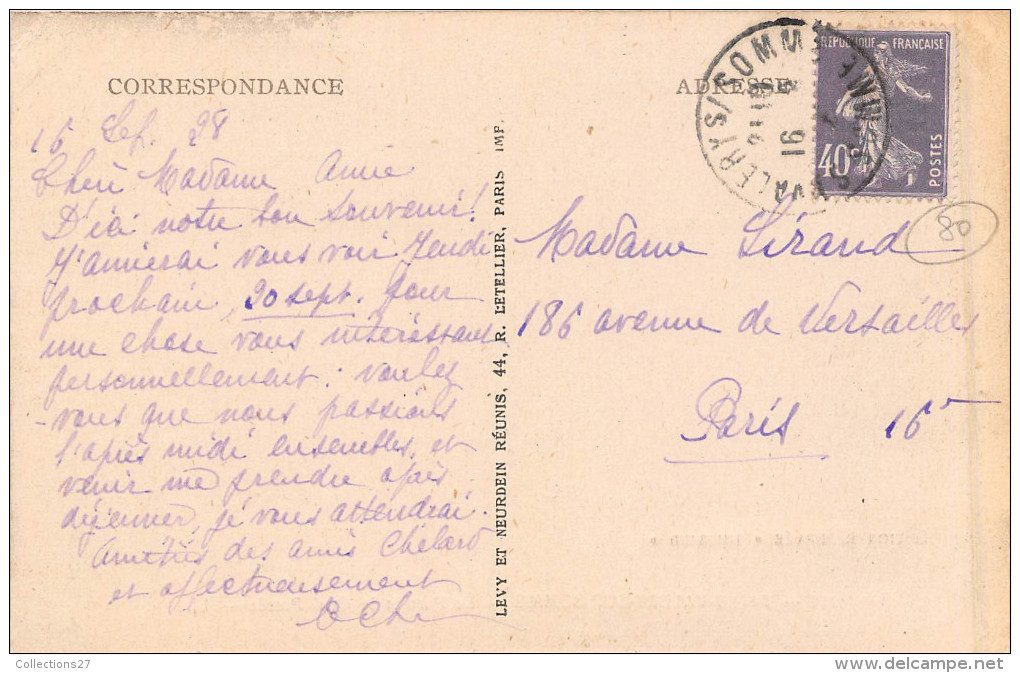 CORRESPONDANCE
16 Sep. 28
Chère Madame Amie
D'ici notre bon souvenir!
J'aimerai vous voir Jeudi
prochain, 20 sept. pour
une chose vous intéressant
personnellement: voulez
-vous que nous passions
l'après midi ensembles, et
venir me prendre après
déjeuner, je vous attendrai.
Amitiés des amis Chélard
et affectueusement
LEVY ET NEURDEIN RÉUNIS, 44, R. LETELLIER, PARIS IMP.
ADRESSE
RÉPUBLIQUE FRANÇAISE
40c
POSTES
VALERY S/ SOMME
16
80
Madame Sirand
186 avenue de Versailles
Paris 16e
Collections27
delcampe.net